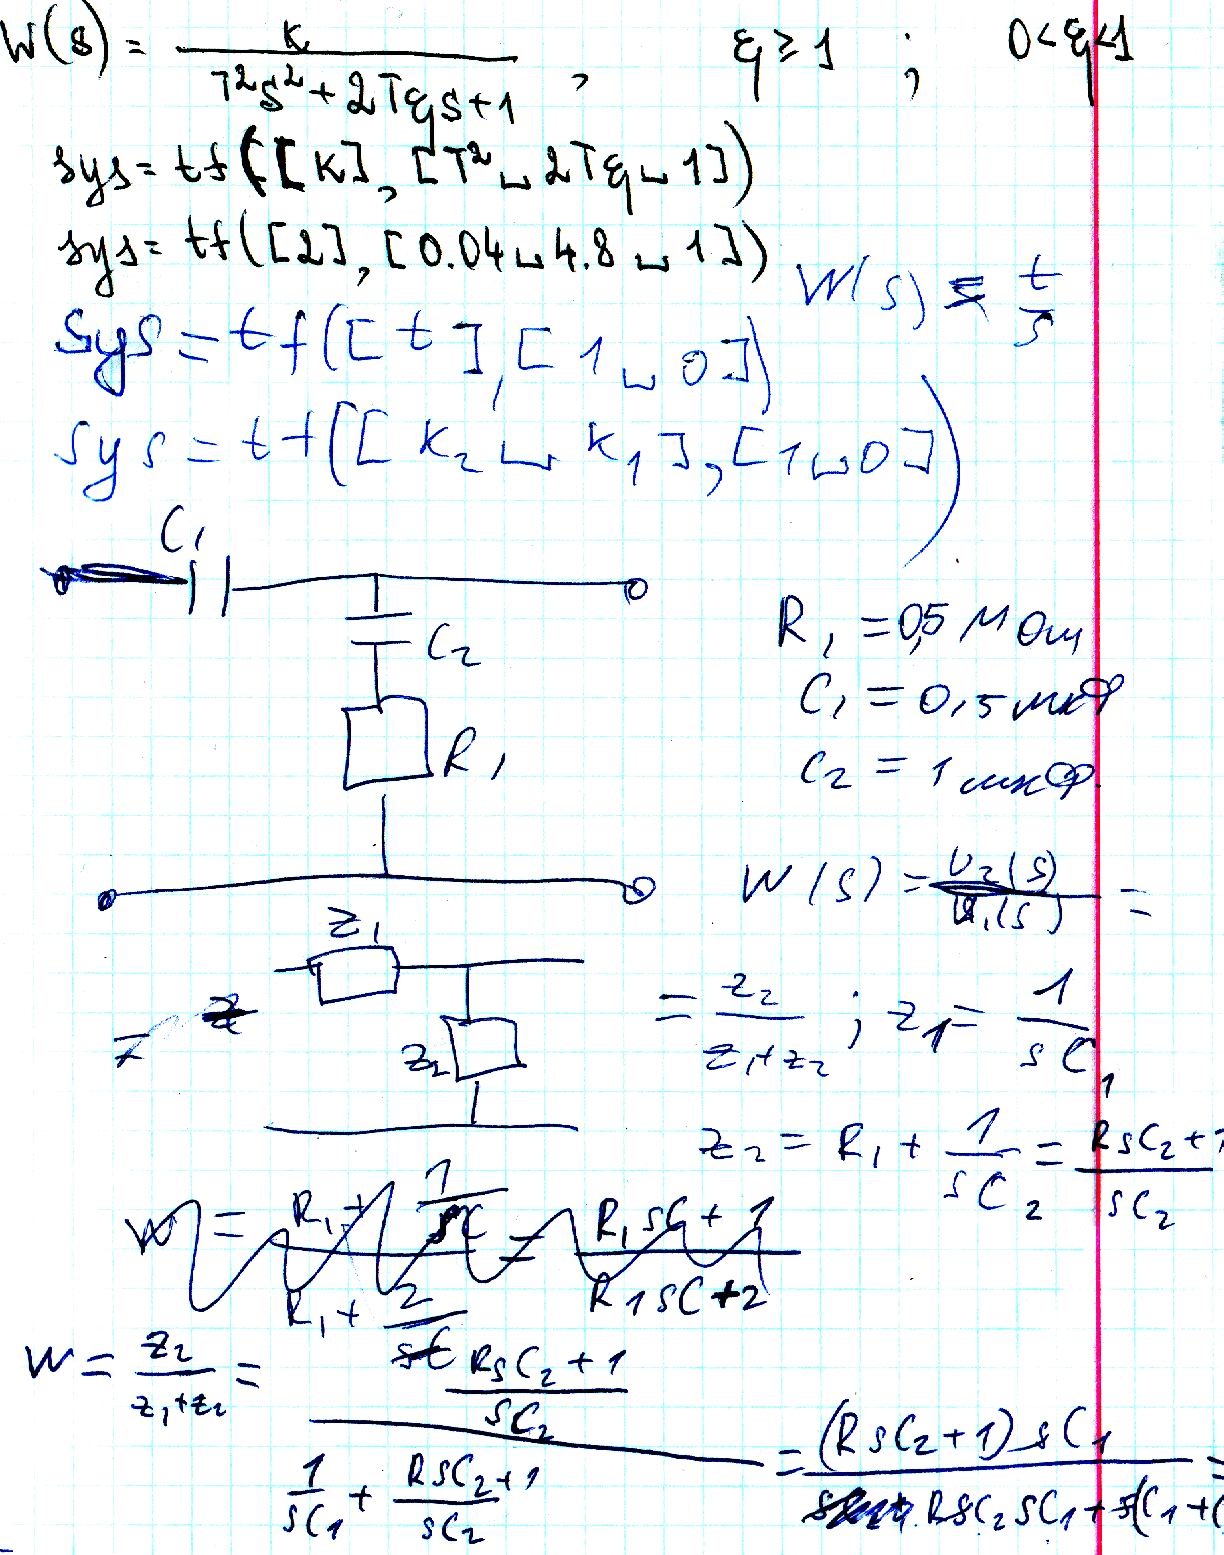 W(s) = K / (T²s² + 2Tξs + 1) , ξ ≥ 1 ; 0 < ξ < 1
sys = tf([K], [T² ␣ 2Tξ ␣ 1])
sys = tf([2], [0.04 ␣ 4.8 ␣ 1])
W(s) = t / s
sys = tf([t], [1 ␣ 0])
sys = tf([K₂ ␣ K₁], [1 ␣ 0])
C₁
C₂
R₁
R₁ = 0,5 МОм
C₁ = 0,5 мкФ
C₂ = 1 мкФ.
W(s) = U₂(s) / U₁(s) =
Z₁
Z₂
= Z₂ / (Z₁+Z₂) ; Z₁ = 1 / sC₁
Z₂ = R₁ + 1 / sC₂ = (RsC₂+1) / sC₂
W = (R₁ + 1/sC) / (R₁ + 2/sC) = (R₁sC + 1) / (R₁sC + 2)
W = Z₂ / (Z₁+Z₂) = ((RsC₂+1) / sC₂) / (1/sC₁ + (RsC₂+1)/sC₂) = (RsC₂+1)sC₁ / (RsC₂sC₁ + s(C₁+C =